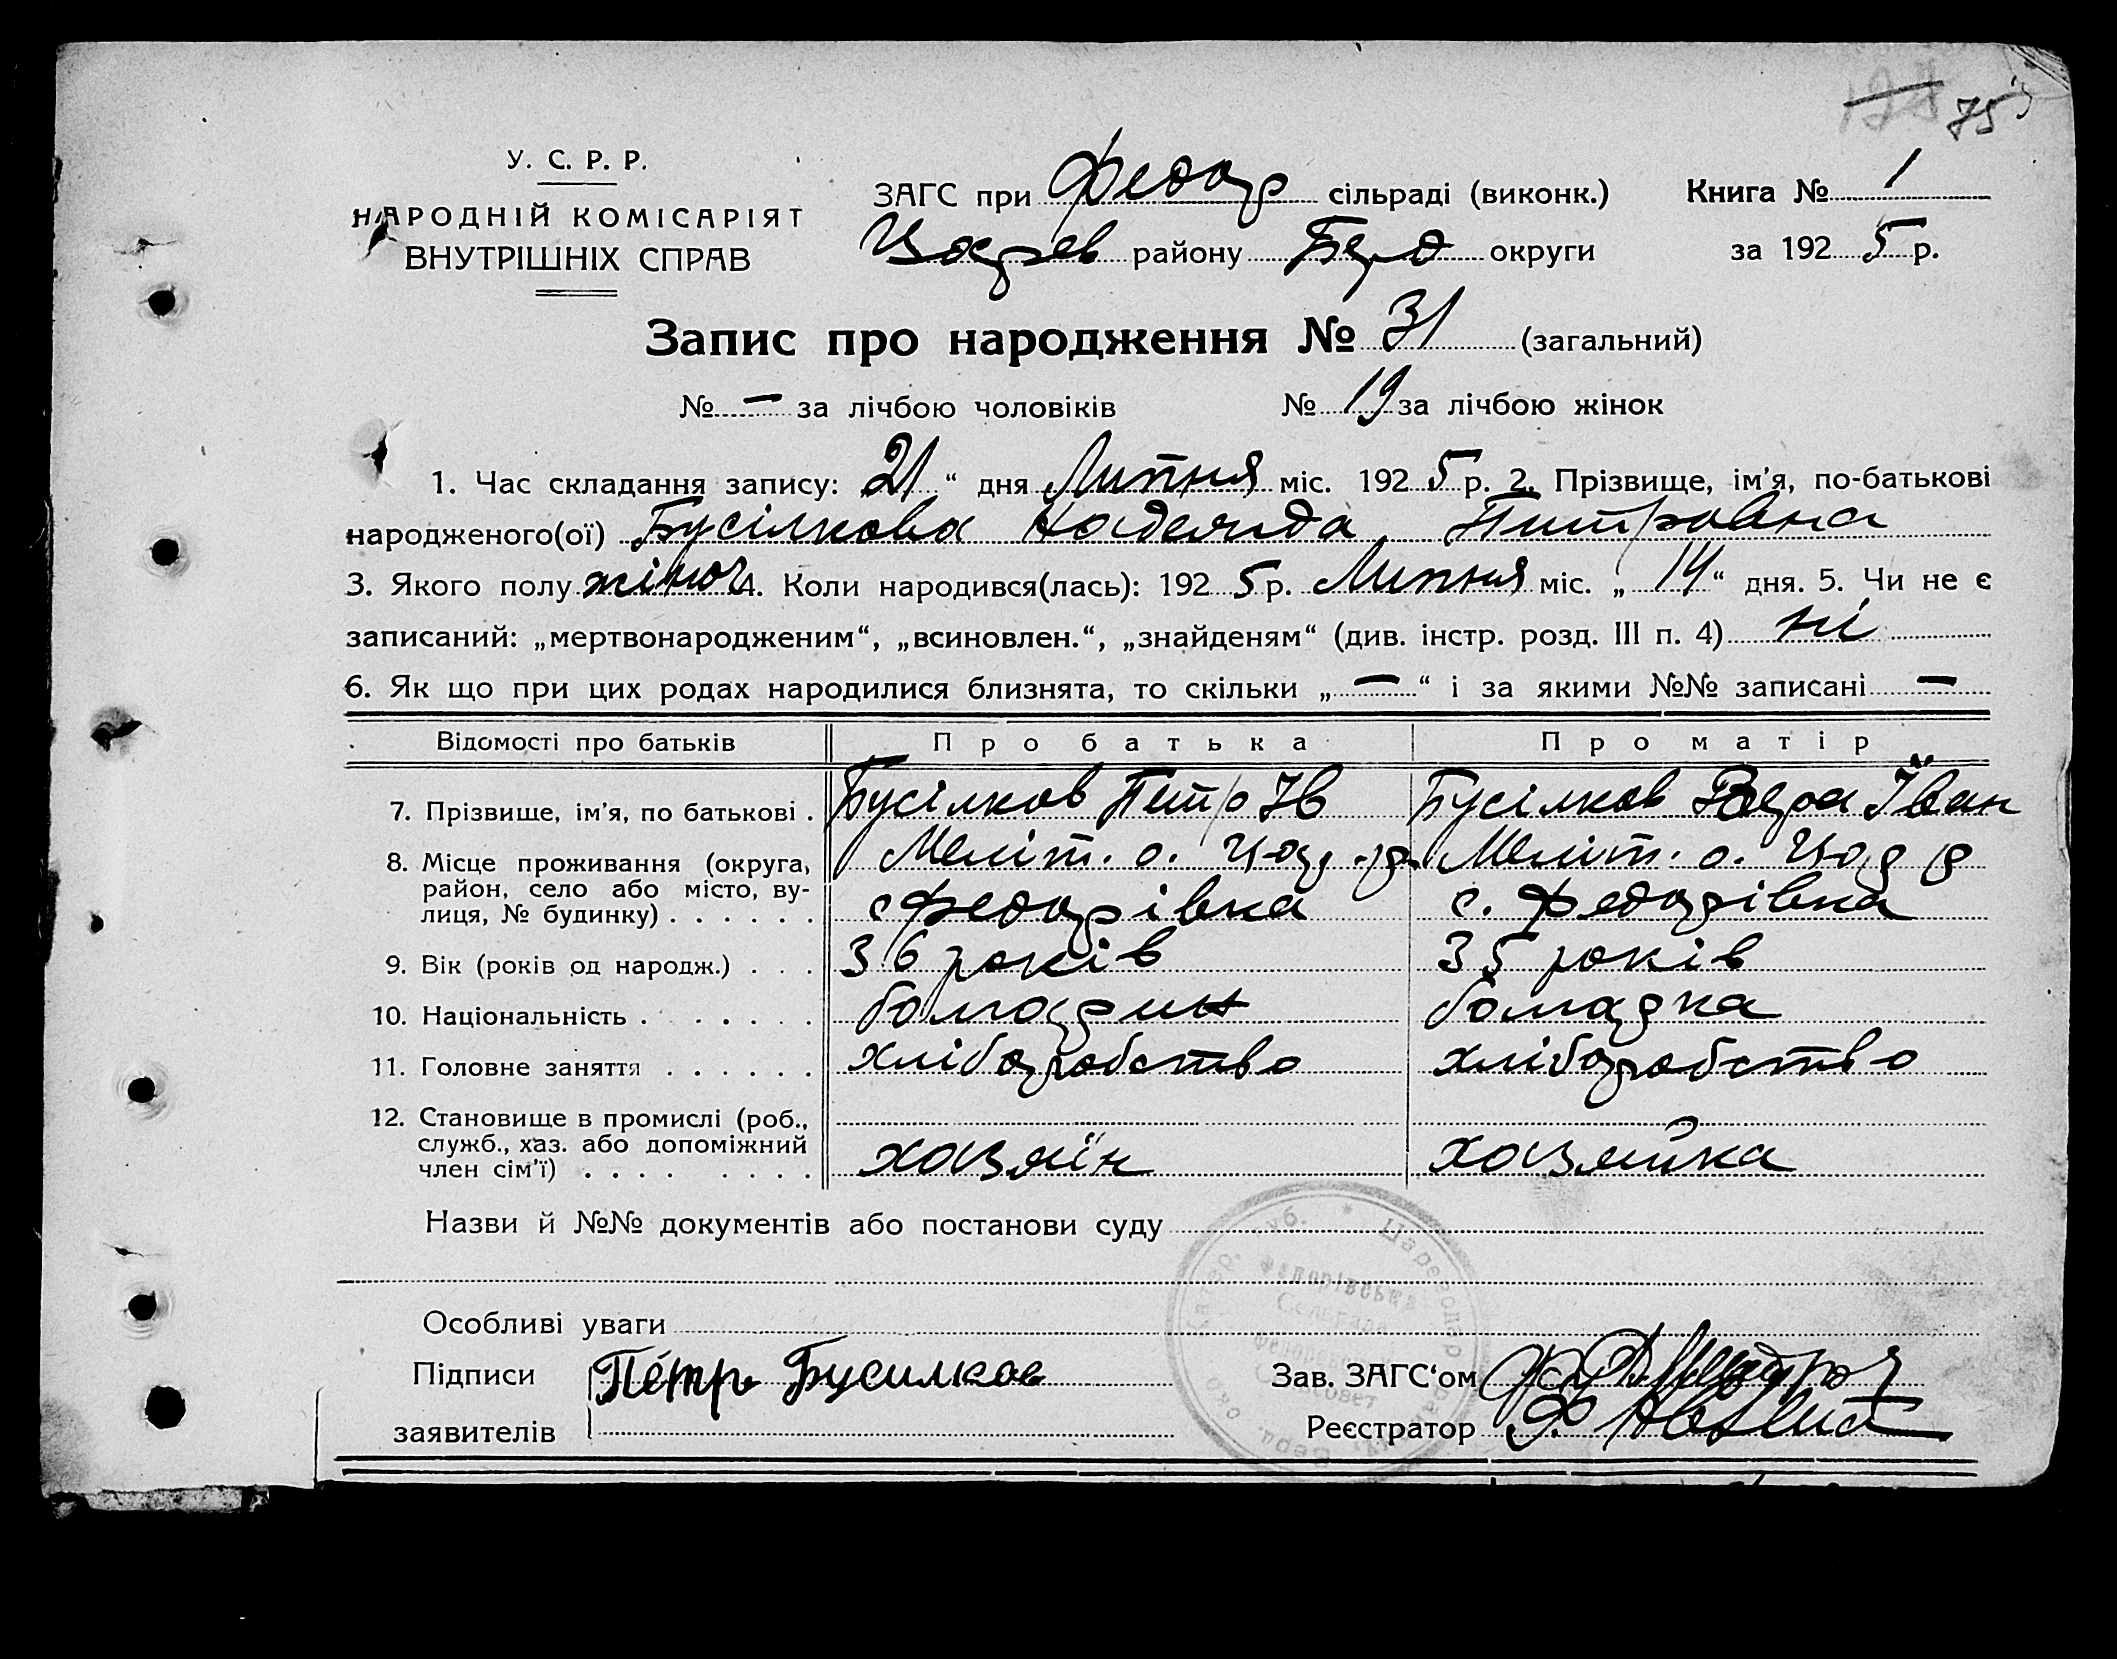 75
У. С. Р. Р.
НАРОДНІЙ КОМІСАРІЯТ
ВНУТРІШНІХ СПРАВ
ЗАГС при Федор сільраді (виконк.) Книга № 1
Царев району Берд округи за 1925 р.
Запис про народження № 31 (загальний)
№ — за лічбою чоловіків № 19 за лічбою жінок
1. Час складання запису: 21 “ дня Липня міс. 1925 р. 2. Прізвище, ім'я, по-батькові
народженого(ої) Бусілкова Надежда Питровна
3. Якого полу жіноч 4. Коли народився(лась): 1925 р. Липня міс. „ 14 “ дня. 5. Чи не є
записаний: „мертвонародженим“, „всиновлен.“, „знайденям“ (див. інстр. розд. III п. 4) ні
6. Як що при цих родах народилися близнята, то скільки „ — “ і за якими №№ записані —
Відомості про батьків Про батька Про матір
7. Прізвище, ім'я, по батькові . Бусілков Питро Ів Бусілков Вера Іван
8. Місце проживання (округа, район, село або місто, вулиця, № будинку) . . . . . . Меліт. о. Цар. р. с Федорівка Меліт. о. Цар р с. Федорівка
9. Вік (років од народж.) . . . 36 років 35 років
10. Національність . . . . . . болгарин болгарка
11. Головне заняття . . . . . . хліборобство хліборобство
12. Становище в промислі (роб., служб., хаз. або допоміжний член сім'ї) . . . . . . . . хазяїн хазяйка
Назви й №№ документів або постанови суду
Особливі уваги
Підписи Петръ Бусилков Зав. ЗАГС'ом
заявителів Реєстратор
Федорівська
Сельрада